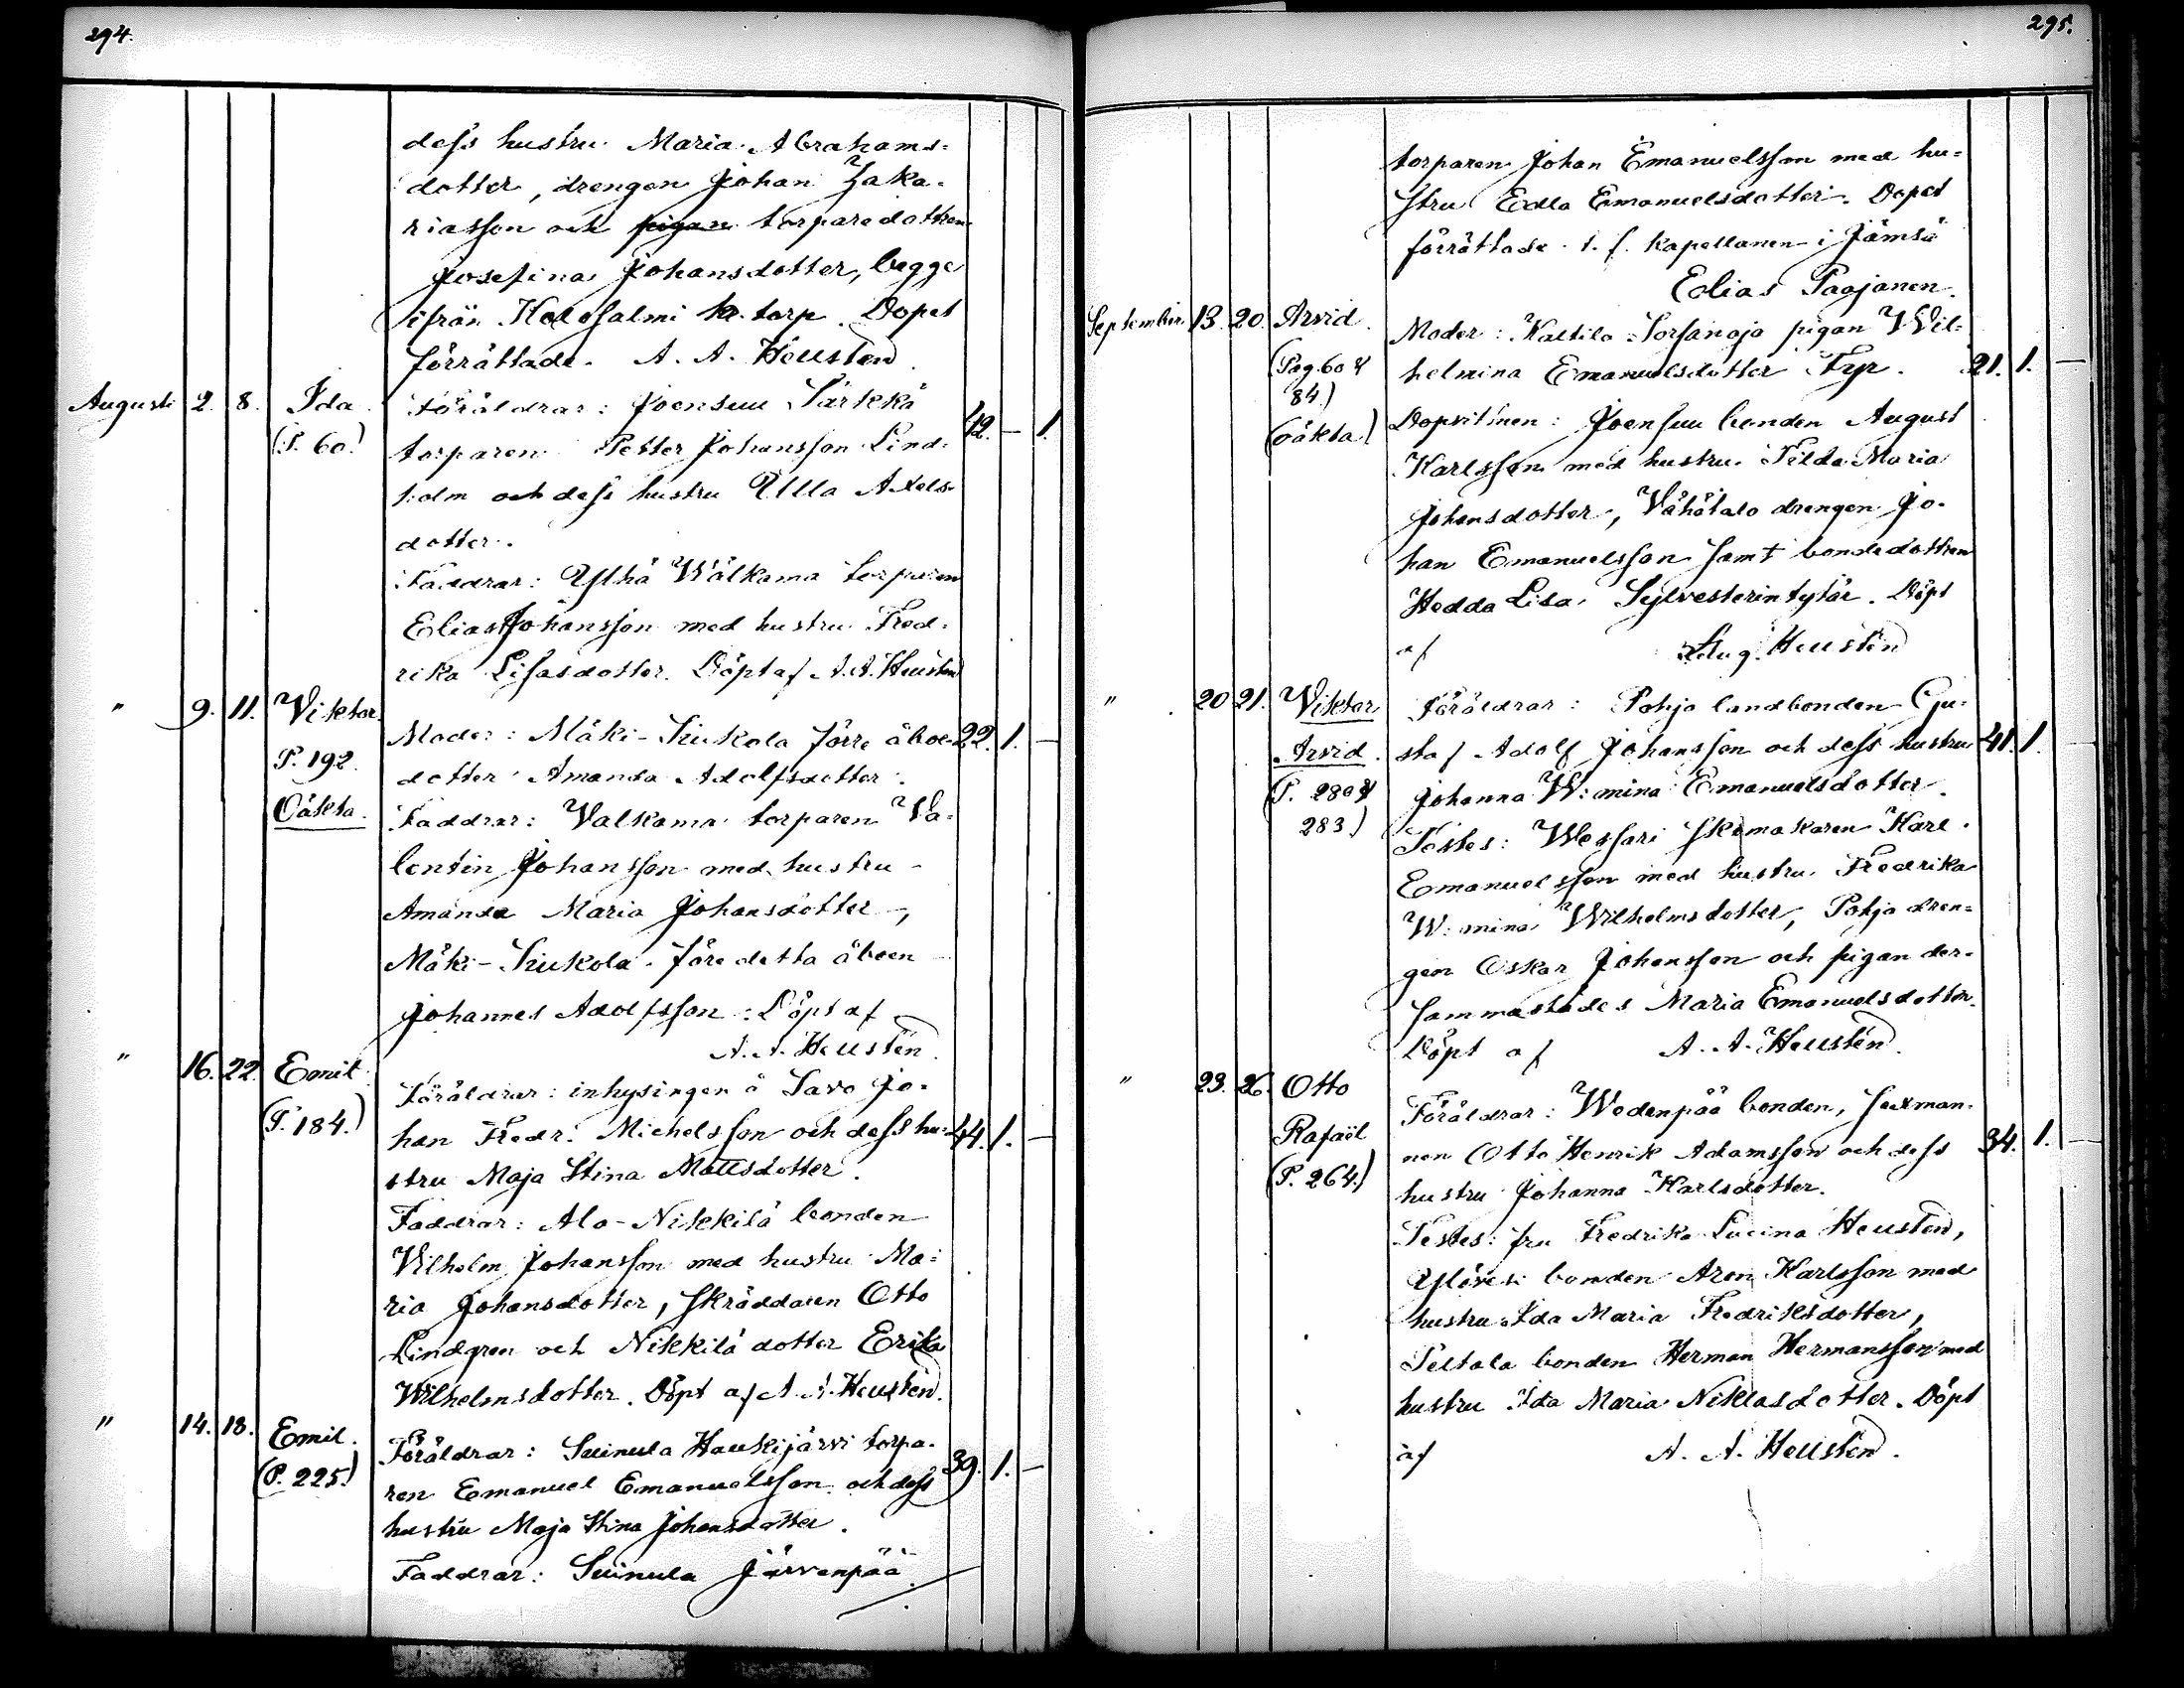 294.
dess hustru Maria Abrahams-
dotter, drengen Johan Zaka-
riasson och pigan torparedottren
Josefina Johansdotter, begge
ifrån torp. Dopet
förrättade A. A. Heusten
Augusti 2. 8. Ida (P. 60.) Föräldrar: Joensuu Särkkä 42. — 1.
torparen Petter Johansson Lind-
holm och dess hustru Ulla Axels-
dotter.
Faddrar: Wälkama torparen
Elias Johansson med hustru Fred-
rika Lisasdotter. Döpt af A. A. Heusten
" 9. 11. Viktor P. 192. Oäkta. Moder: Mäki-Siukola förre åboe- 22. 1. —
dotter Amanda Adolfsdotter.
Faddrar: Valkama torparen Va-
lentin Johansson med hustru
Amanda Maria Johansdotter,
Mäki-Siukola före detta åboen
Johannes Adolfsson. Döpt af
A. A. Heusten.
" 16. 22. Emil (P. 184.) Föräldrar: inhysingen å Savo Jo-
han Fredr. Michelsson och dess hu- 44. 1. —
stru Maja Stina Mattsdotter.
Faddrar: Ala-Nikkilä bonden
Vilhelm Johansson med hustru Ma-
ria Johansdotter, skräddaren Otto
Lindgren och Nikkilä dotter Erika
Wilhelmsdotter. Döpt af A. A. Heusten.
" 14. 18. Emil. (P. 225.) Föräldrar: Suinula Haukijärvi torpa-
ren Emanuel Emanuelsson och dess 39. 1. —
hustru Maja Stina Johansdotter.
Faddrar: Suinula Järvenpää
295.
torparen Johan Emanuelsson med hu-
stru Edla Emanuelsdotter. Dopet
förrättade t. f. kapellanen i Jämsä
Elias Paajanen.
September 13. 20. Arvid. (Pag. 60 & 84.) (oäkta) Moder: Kaltila pigan Wil-
helmina Emanuelsdotter Fyr. 21. 1. —
Dopvittnen: Joensuu bonden August
Karlsson med hustru Tilda Maria
Johansdotter, Vähätalo drengen Jo-
han Emanuelsson samt bondedottren
Hedda Lisa Sylvesterintytär. Döpt
af Aug. Heusten
" 20 21. Viktor Arvid. (P. 280 & 283.) Föräldrar: Pohja landbonden Gu-
staf Adolf Johansson och dess hustru 41. 1.
Johanna W:mina Emanuelsdotter.
Testes: Wessari skomakaren Karl
Emanuelsson med hustru Fredrika
W:mina Wilhelmsdotter, Pohja dren-
gen Oskar Johansson och pigan der-
sammastädes Maria Emanuelsdotter.
Döpt af A. A. Heusten.
" 23. 26. Otto Rafaël (P. 264.) Föräldrar: Wedenpää bonden, sexman-
nen Otto Henrik Adamsson och dess 34. 1. —
hustru Johanna Karlsdotter.
Testes: fru Fredrika Lucina Heusten,
bonden Aron Karlsson med
hustru Ida Maria Fredriksdotter,
Peltala bonden Herman Hermansson med
hustru Ida Maria Niklasdotter. Döpt
af A. A. Heusten.